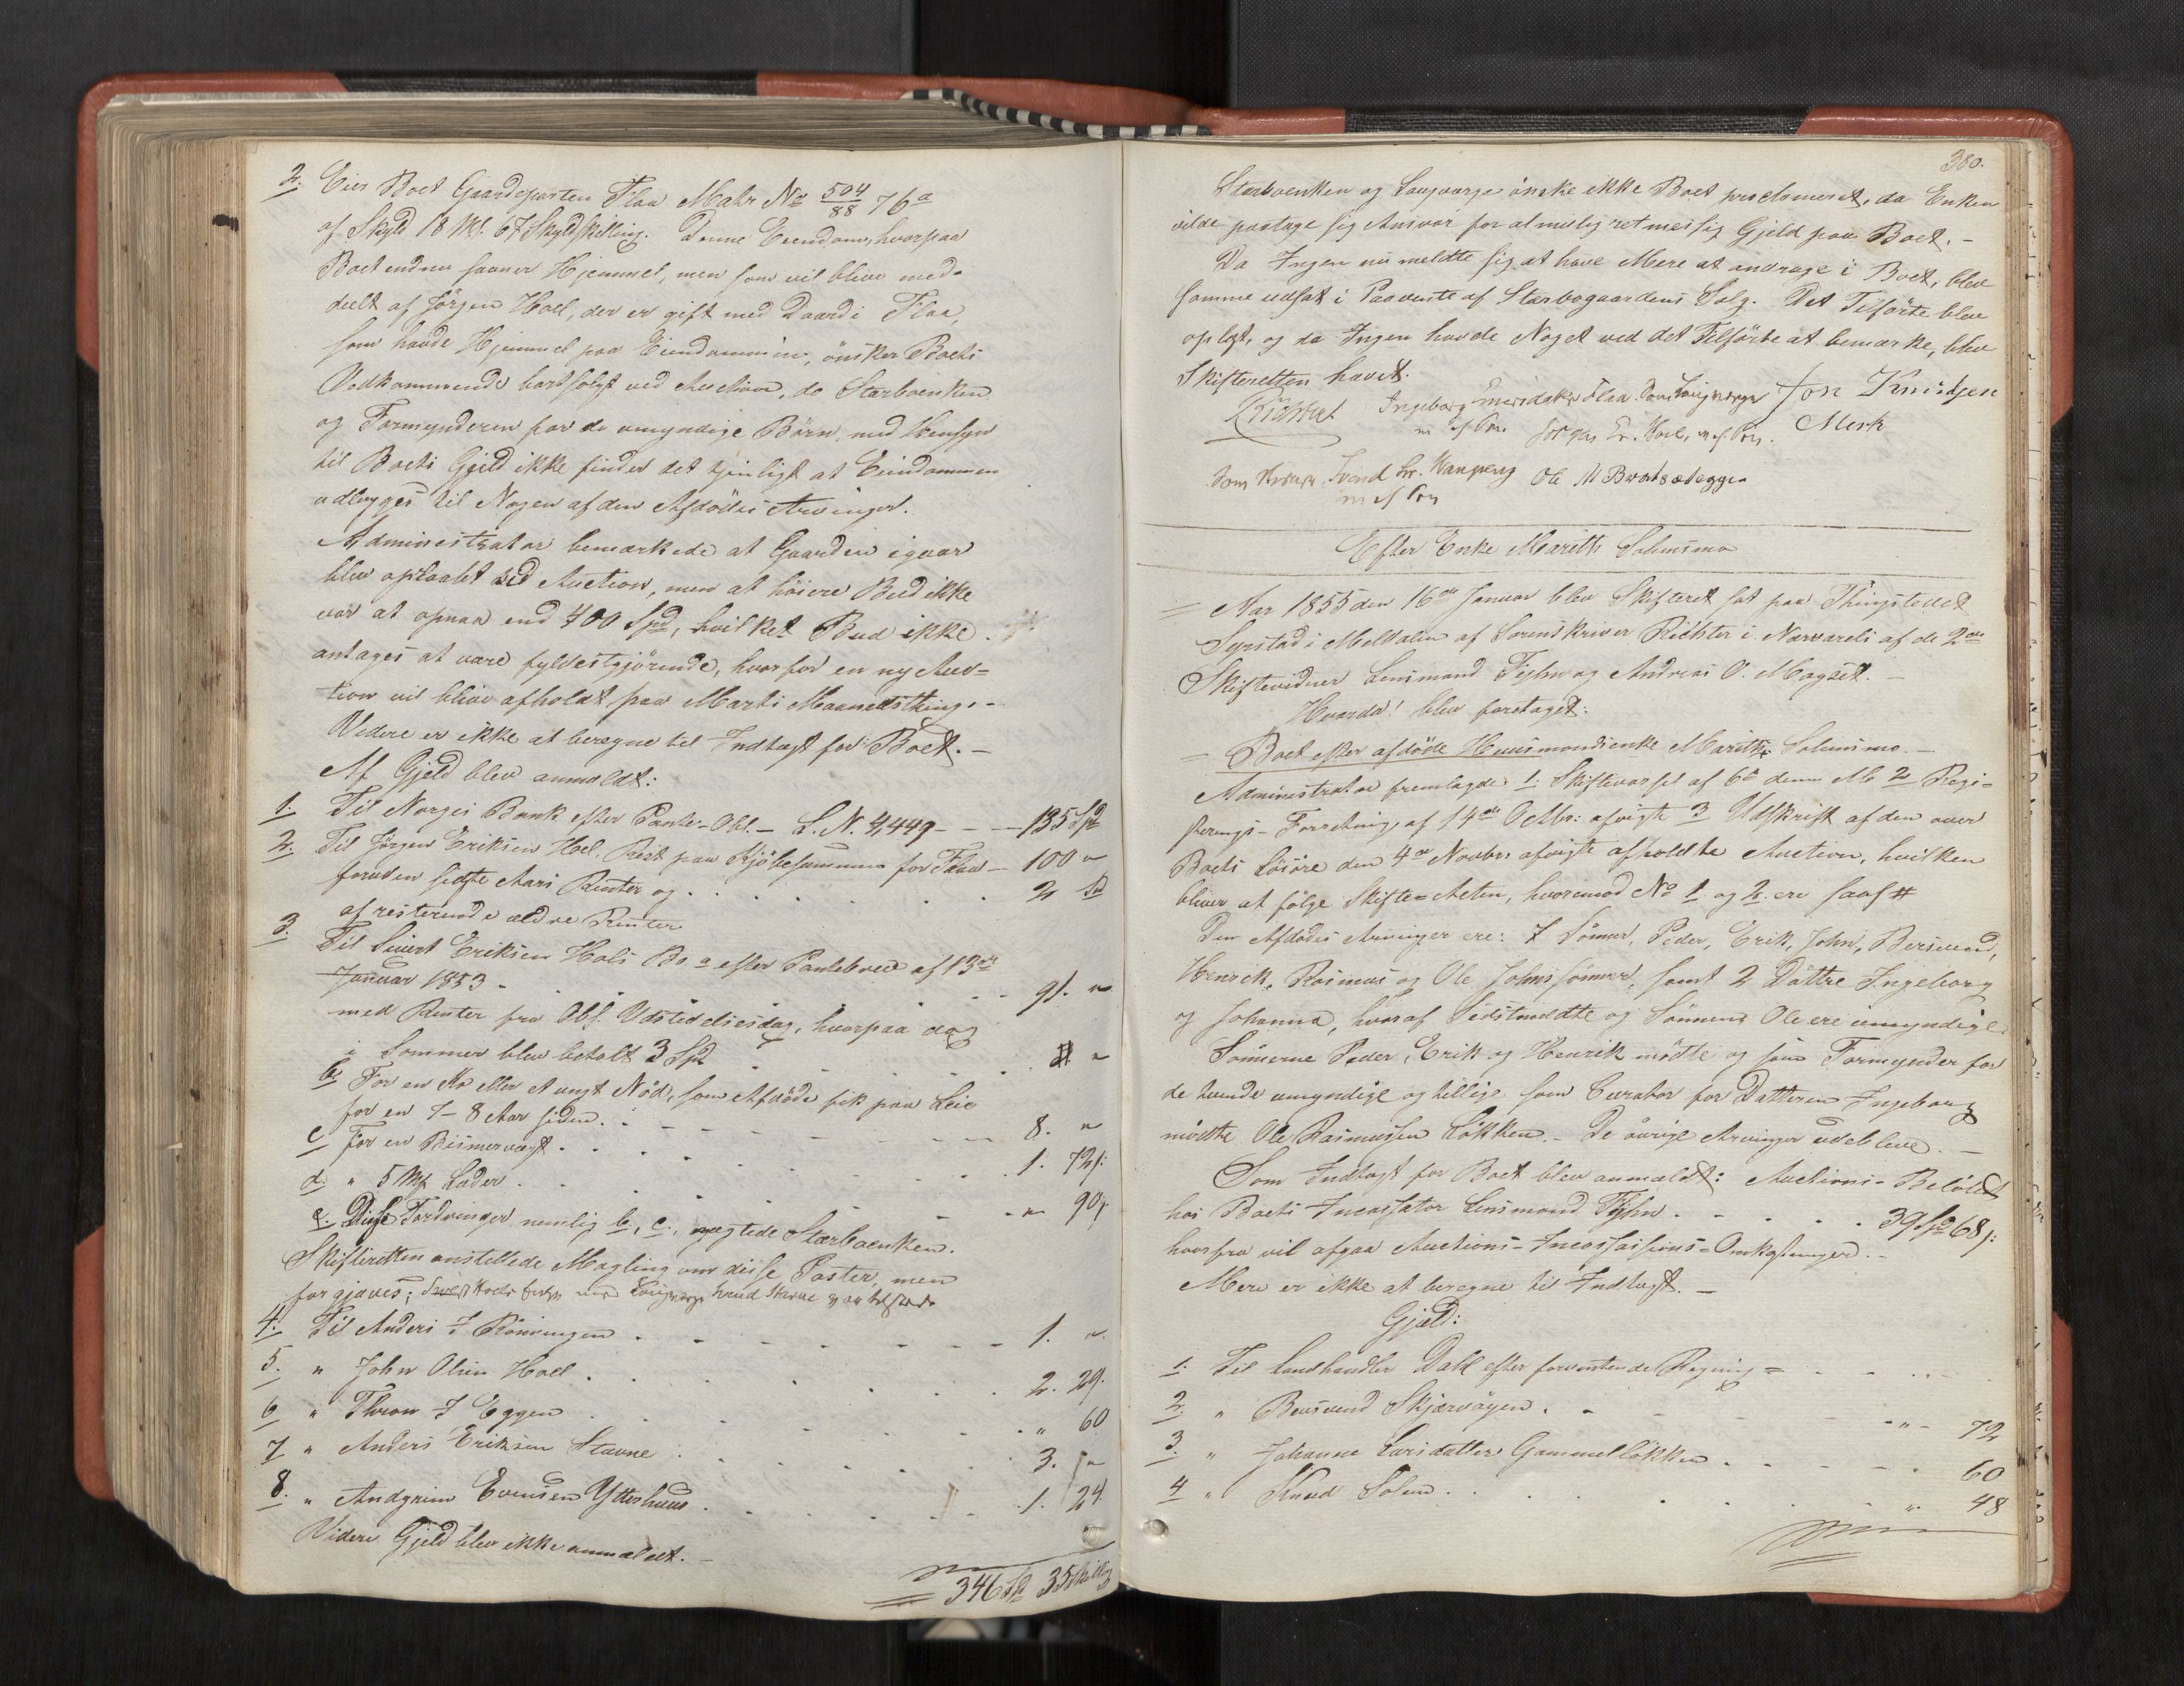 2. Eier Boet Gaardeparten Flaa Matr No 504/88 76a
af Skyld 18 Mk. 67 Skyldskilling. Denne Eiendom, hvorpaa
Boet endnu savner Hjemmel, men som vil blive med-
deelt af Jörgen Hoel, der er gift med Daardi Flaa,
som havde Hjemmel paa Eiendommen, önsker Boets
Vedkommende bortsolgt ved Auction, da Stervboenken
og Formynderen for de umyndige Börn, med Hensyn
til Boets Gjeld ikke finder det tjenligt at Eiendommen
udlægges til Nogen af den Afdödes Arvinger.
Administrator bemærkede at Gaarden igaar
blev opraabt ved Auction, men at höiere Bud ikke
var at opnaa end 400 Spd, hvilket Bud ikke
antages at være fyldestgjörende, hvorfor en ny Auc-
tion vil blive afholdt paa Marti Maanedsthing. -
Videre er ikke at beregne til Indtægt for Boet. -
Af Gjeld blev anmeldt:
1. Til Norges Bank efter Pante-Obl. - L. N. 4,449 - - - 135 Spd
2. Til Jörgen Eriksen Hoel, Rest paa Kjöbesummen for Flaa - 100 "
foruden sidste Aars Renter og . . . . . 2
af resterende ældre Renter
3. Til Sivert Eriksen Hols Bo a efter Pantebrev af 13de
Januar 1853 - . . . . 91. "
med Renter fra Obl. Udstedelsesdag, hvorpaa dog
i Sommer blev betalt 3 Spd . . . "
b. For en Ko eller et ungt Nöd, som Afdöde fik paa Leie
for en 7-8 Aar siden. . - - - - 8. "
c For en Bismervægt . . . . . 1. 72 s:
d. " 5 Mk Læder . . . . - - " 90 s.
e. Disse Fordringer nemlig b, c., nægtede Stærboenken.
Skifteretten anstillede Mægling om disse Poster, men
forgjæves;
4. Til Anders J Rönningen . - - - - 1. "
5. " John Olsen Hoel . . . . . 2. 29.
6 " Thron J Eggen . . . . . " 60
7 " Anders Eriksen Stavne . . . . 3. "
8. " Andgrim Evensen Ytterhuus . . . . 1. 24.
Videre Gjeld blev ikke anmeldet. -
346 Spd 35 skilling
380.
Stærboenken og Laugværge önske ikke Boet proclameret, da Enken
vilde paatage sig Ansvar for al mulig retmæssig Gjeld paa Boet. -
Da Ingen nu meldte sig at have Mere at andrage i Boet, blev
samme udsat i Paavente af Stærbogaardens Salg. Det Tilförte blev
oplæst, og da Ingen havde Noget ved det Tilförte at bemærke, blev
Skifteretten hævet.
Richter Ingeborg Flaa Jon Knudsen
m. p. Pen. Jörgen Er. Hoel, m. p. Pen. Merk
Svend Kampeng Ole M Bratsetegge
m p Pen
Efter Enke Marith Solemsmo
= Aar 1855 den 16de Januar blev Skifteret sat paa Thingstedet
Syrstad i Meldalen af Sorenskriver Richter i Nærværelse af de 2de
Skiftevidner Lensmand Fyhn og Andreas O. Mogset. -
Hvorda! blev foretaget:
- Boet efter afdöde Huusmandsenke Marith Solemsmo. -
Administrator fremlagde 1. Skiftevarsel af 6te denne Md 2 Regi-
sterings-Forretning af 14de Octbr: afvigte 3 Udskrift af den over
Boets Lösöre den 4de Novbr: afvigte afholdte Auction, hvilken
bliver at fölge Skifte-Acten, hvorimod No 1 og 2. ere saal #
Den Afdödes Arvinger ere: 7 Sönner, Peder, Erik, John, Bersvend,
Henrik, Rasmus og Ole Johnssönner, samt 2 Döttre Ingeborg
og Johanna, hvoraf Sidstmeldte og Sönnen Ole ere umyndige.
Sönnerne Peder, Erik og Henrik mödte og som Formynder for
de tvende umyndige og tillige som Curator for Datteren Ingeborg
mödte Ole Rasmussen Lökken. - De övrige Arvinger udebleve. -
Som Indtægt for Boet blev anmeldt: Auctions-Belöbet
hos Boets Incassator Lensmand Fyhn . - . . . 39 Spd 68 s:
hvorfra vil afgaa Auctions-Incassations-Omkostninger. -
Mere er ikke at beregne til Indtægt. -
Gjeld:
1. Til Landhandler Dahl efter forventende Regning - - . .
2. " Bersvend Skjærvöyen . - - - - " - 72
3. " Johanne Larsdatter Gammellökken . . - - - 60
4 " Knud Solem . . . . . . " 48